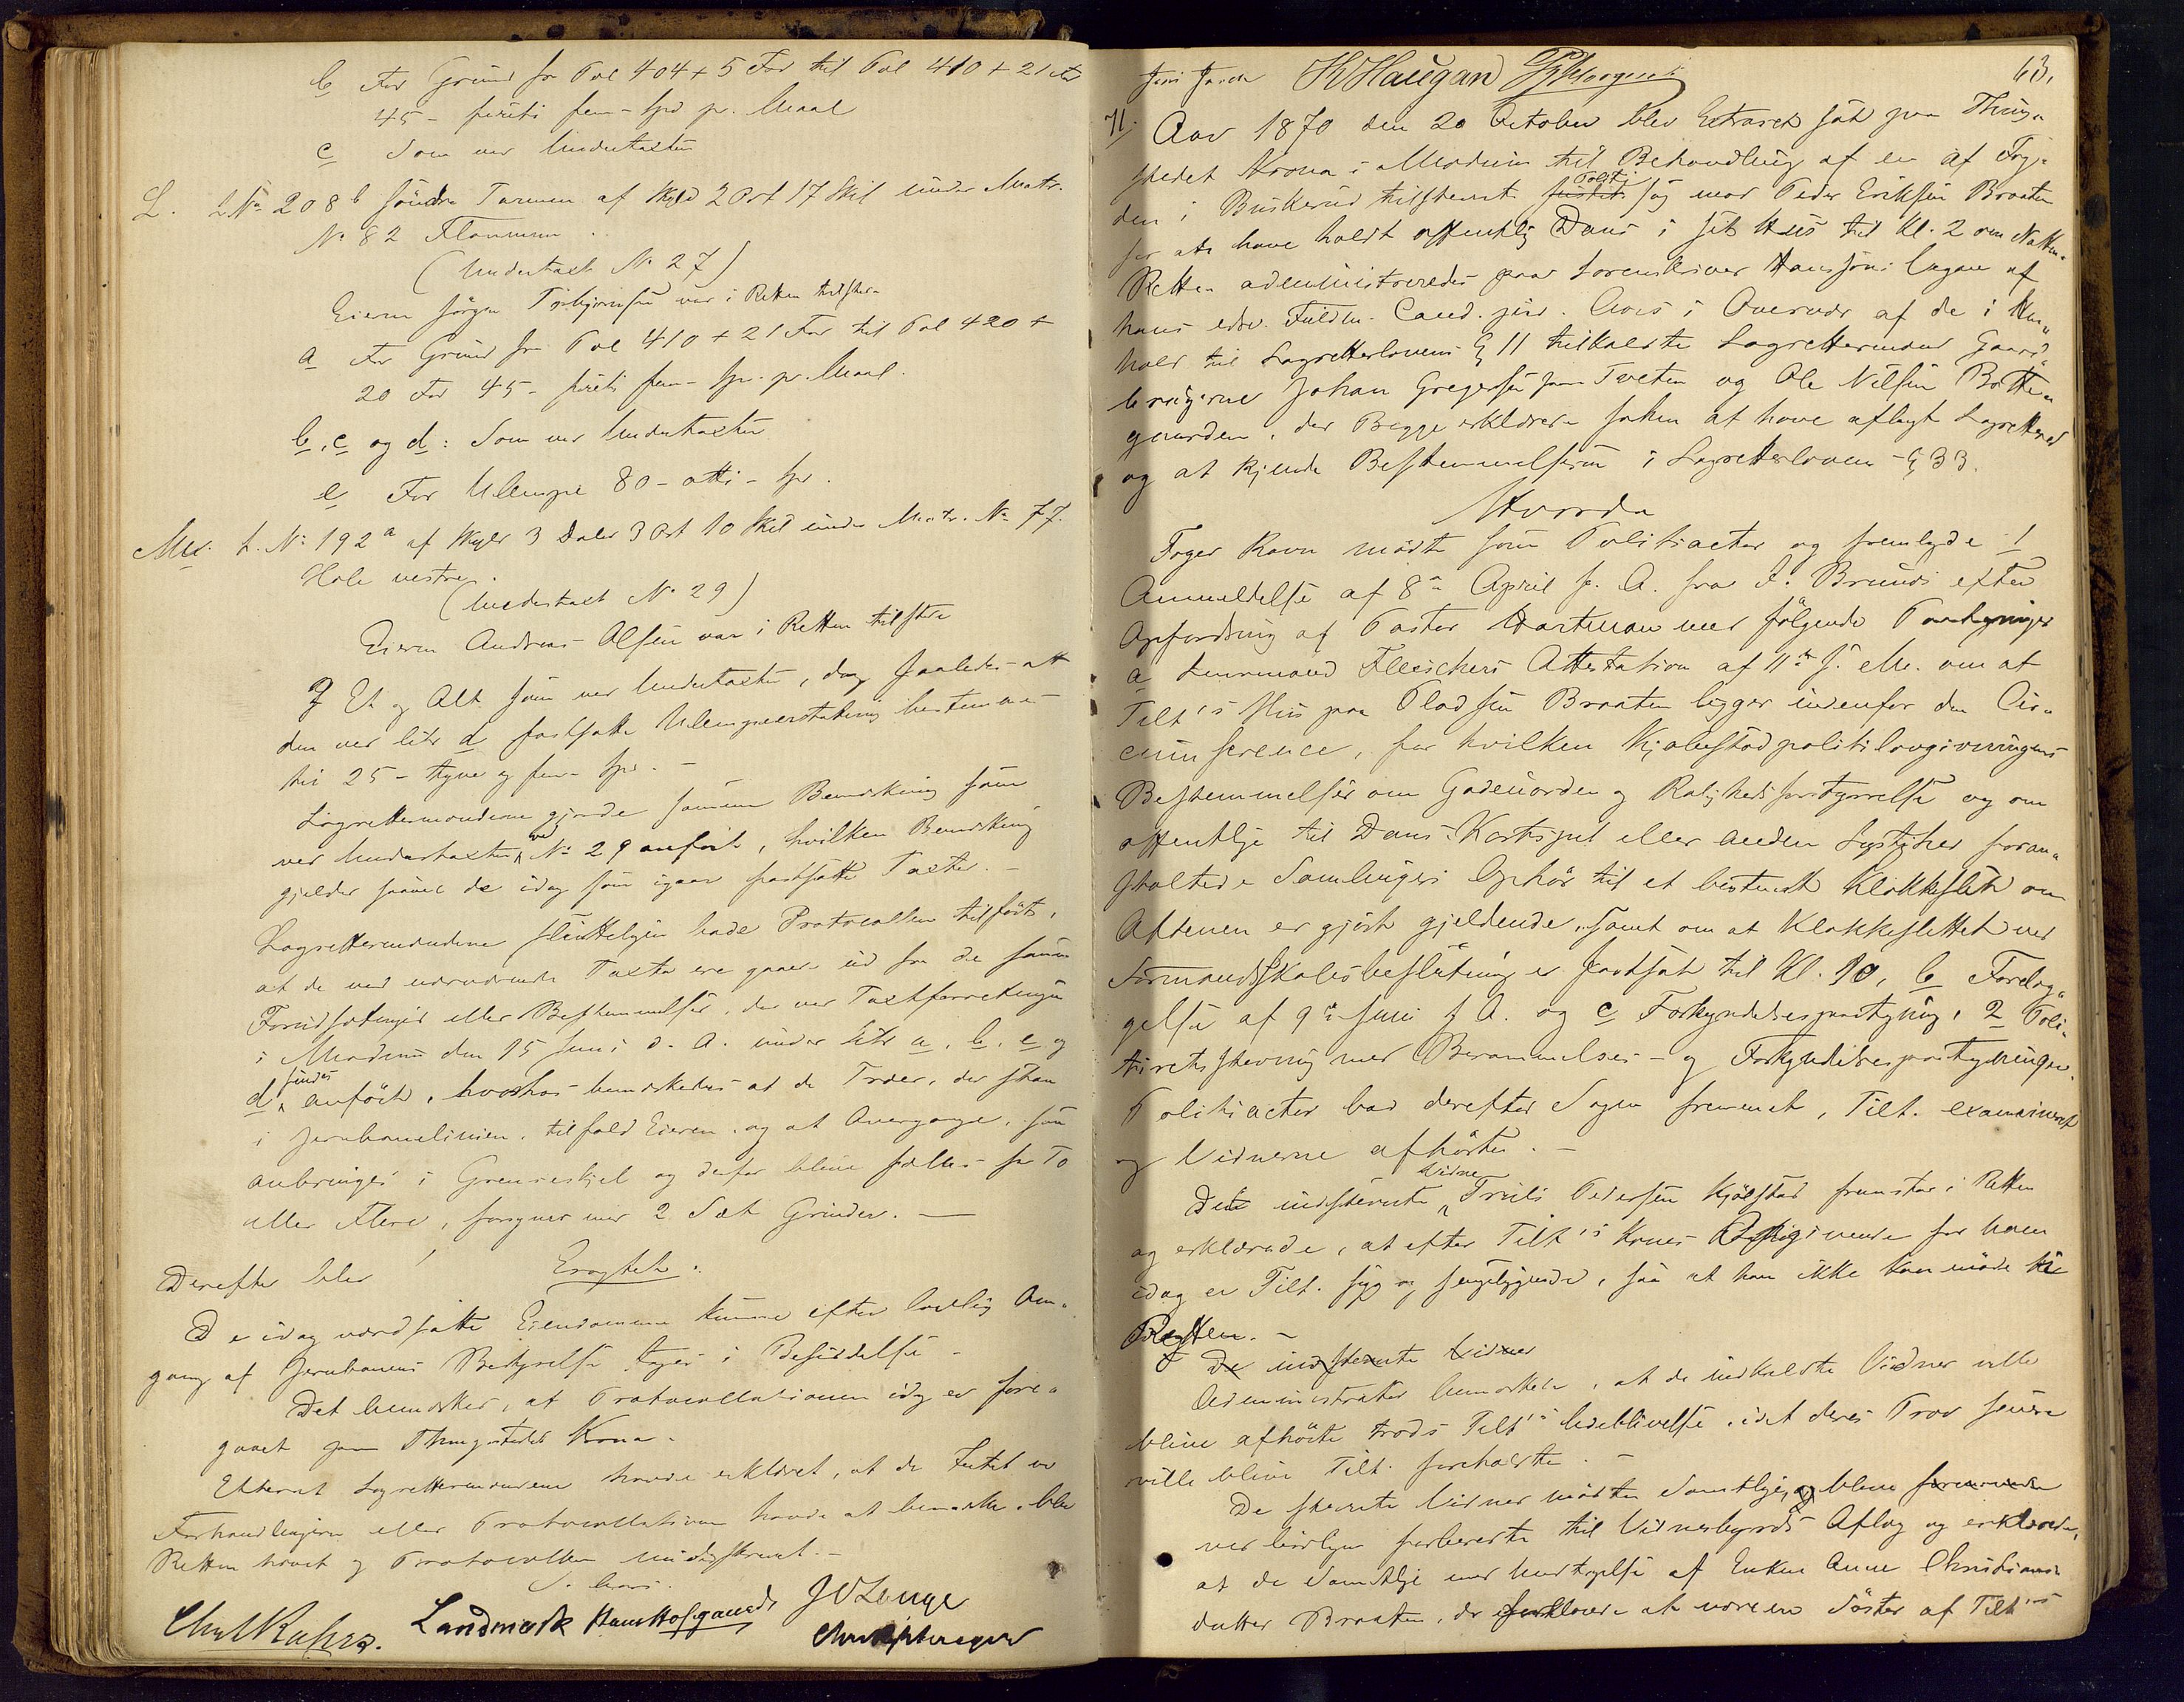 b For Grund fra Pæl 404 + 5 Fod til Pæl 410 + 21 Fod
45 - firti fem - Spd pr. Maal
c Som ved Undertaxten
L. L No 208 b søndre Tarmen af Skyld 2 Ort 17 Skil under Matr.
No 82 Flannum.
(Undertaxt No 27)
Eieren Jørgen Torbjørnsen var i Retten tilstede
a For Grund fra Pæl 410 + 21 Fod til Pæl 420 +
20 Fod 45 - firti fem - Spd. pr. Maal.
b, c og d: Som ved Undertaxten
e For Ulempe 80 - otti - Spd.
L. No 192 a af Skyld 3 Daler 3 Ort 10 Skil under Matr. No 77.
Hole vestre.
(Undertaxt No 29)
Eieren Andreas Olsen var i Retten tilstede
Et og Alt som ved Undertaxten, dog saaledes at
den ved litr d fastsatte Ulempeerstatning bestemmes
til 25 - tyve og fem - Spd. -
Lagrettesmændene gjorde samme Bemærkning som
ved Undertaxten ved No 29 anført, hvilken Bemærkning
gjelder saavel de idag som igaar fastsatte Taxter. -
Lagrettesmændene sluttelig bade Protocollen tilført,
at de ved nærværende Taxter ere gaaede ud fra de samme
Forudsætninger eller Bestemmelser, der ved Taxtforretningen
i Modum den 15 Juni d. A. under Litr a, b, c og
d findes anført, hvorhos bemærkedes at de Træer, der staa
i Jernbanelinien, tilfald Eieren, og at Overgange, som
anbringes i Grendseskjel og derfor blive fælles for To
eller Flere, forsynes med 2 Sæt Grinder. -
Derefter blev
Eragtet.
De idag værdsatte Eiendomme kunne efter lovlig Om-
gang af Jernbanens Bestyrelse tages i Besiddelse. -
Det bemærkes, at Protocollationen idag er fore-
gaaet paa Thingstedet Krona.
Efterat Lagrettesmændene havde erklæret, at de Intet ved
Forhandlingen eller Protocollationen havde at bemærke, blev
Retten hævet og Protocollen underskrevet. -
Landmark Hans Hofgaard J V Lange
63.
H Haugan
Aar 1870 den 20 October blev Extraret sat paa Thing-
stedet Krona i Modum til Behandling af en af Fog-
den i Buskerud tilstevnt Justits Politi Sag mod Peder Eriksen Braaten
for at have holdt offentlig Dans i sit Hus til Kl. 2 om Natten.
Retten administreredes paa Sorenskriver Hansons Vegne af
hans edsv. Fuldm. Cand. jur. i Overvær af de i Hen-
hold til Lagretteslovens § 11 tilkaldte Lagrettesmænd Gaard-
brugerne Johan Gregersen Tveten og Ole Nilsen Botten-
gaarden, der Begge erklærede sig at have aflagt Lagretteed
og at kjende Bestemmelserne i Lagretteloven § 33.
Hvorda
Foged Ravn mødte som Politiactor og fremlagde 1
Anmeldelse af 8de April f. A. fra J. Bruds efter
Opfordring af Pastor Hartman med følgende Paategninger
a Lensmand Fleischers Attestation af 11te f. M. om at
Tilt's Hus paa Pladsen Braaten ligger indenfor den Cir-
cumference, for hvilken Kjøbstadpolitilovgivningens
Bestemmelser om Gadeuorden og Rolighedsforstyrrelse og om
offentlige til Dans Kortspil eller anden Lystighed foran-
staltede Samlingers Ophør til et bestemt Klokkeslet om
Aftenen er gjort gjeldende, samt om at Klokkeslettet ved
Formandskabsbeslutning er fastsat til Kl. 10, b Forelæg-
gelse af 9de Juni f. A. og c Forkyndelsespaategning, 2 Poli-
tiretsstevning med Berammelses- og Forkyndelsespaategninger.
Politiactor bad derefter Sagen fremmet, Tilt. examineret
og Vidnerne afhørte. -
Det indstevnte Vidne Truls Pedersen Kjølstad fremstod i Retten
og erklærede, at efter Tilt's Kones Opgivende for ham
idag er Tilt. syg og sengeliggende, saa at han ikke kan møde til
Retten. -
De indstevnte Vidner
Administrator bemærkede, at de indkaldte Vidner ville
blive afhørte trods Tilt's Udeblivelse, idet deres Prov senere
ville blive Tilt. foreholdte. -
De stevnte Vidner mødte Samtlige, og bleve
ved lovlyn forberedte til Vidnesbyrds Aflæg og erklærede,
at de Samtlige med Undtagelse af Enken Anne Christians-
datter Braaten, der forklarede at være en Søster af Tilt's